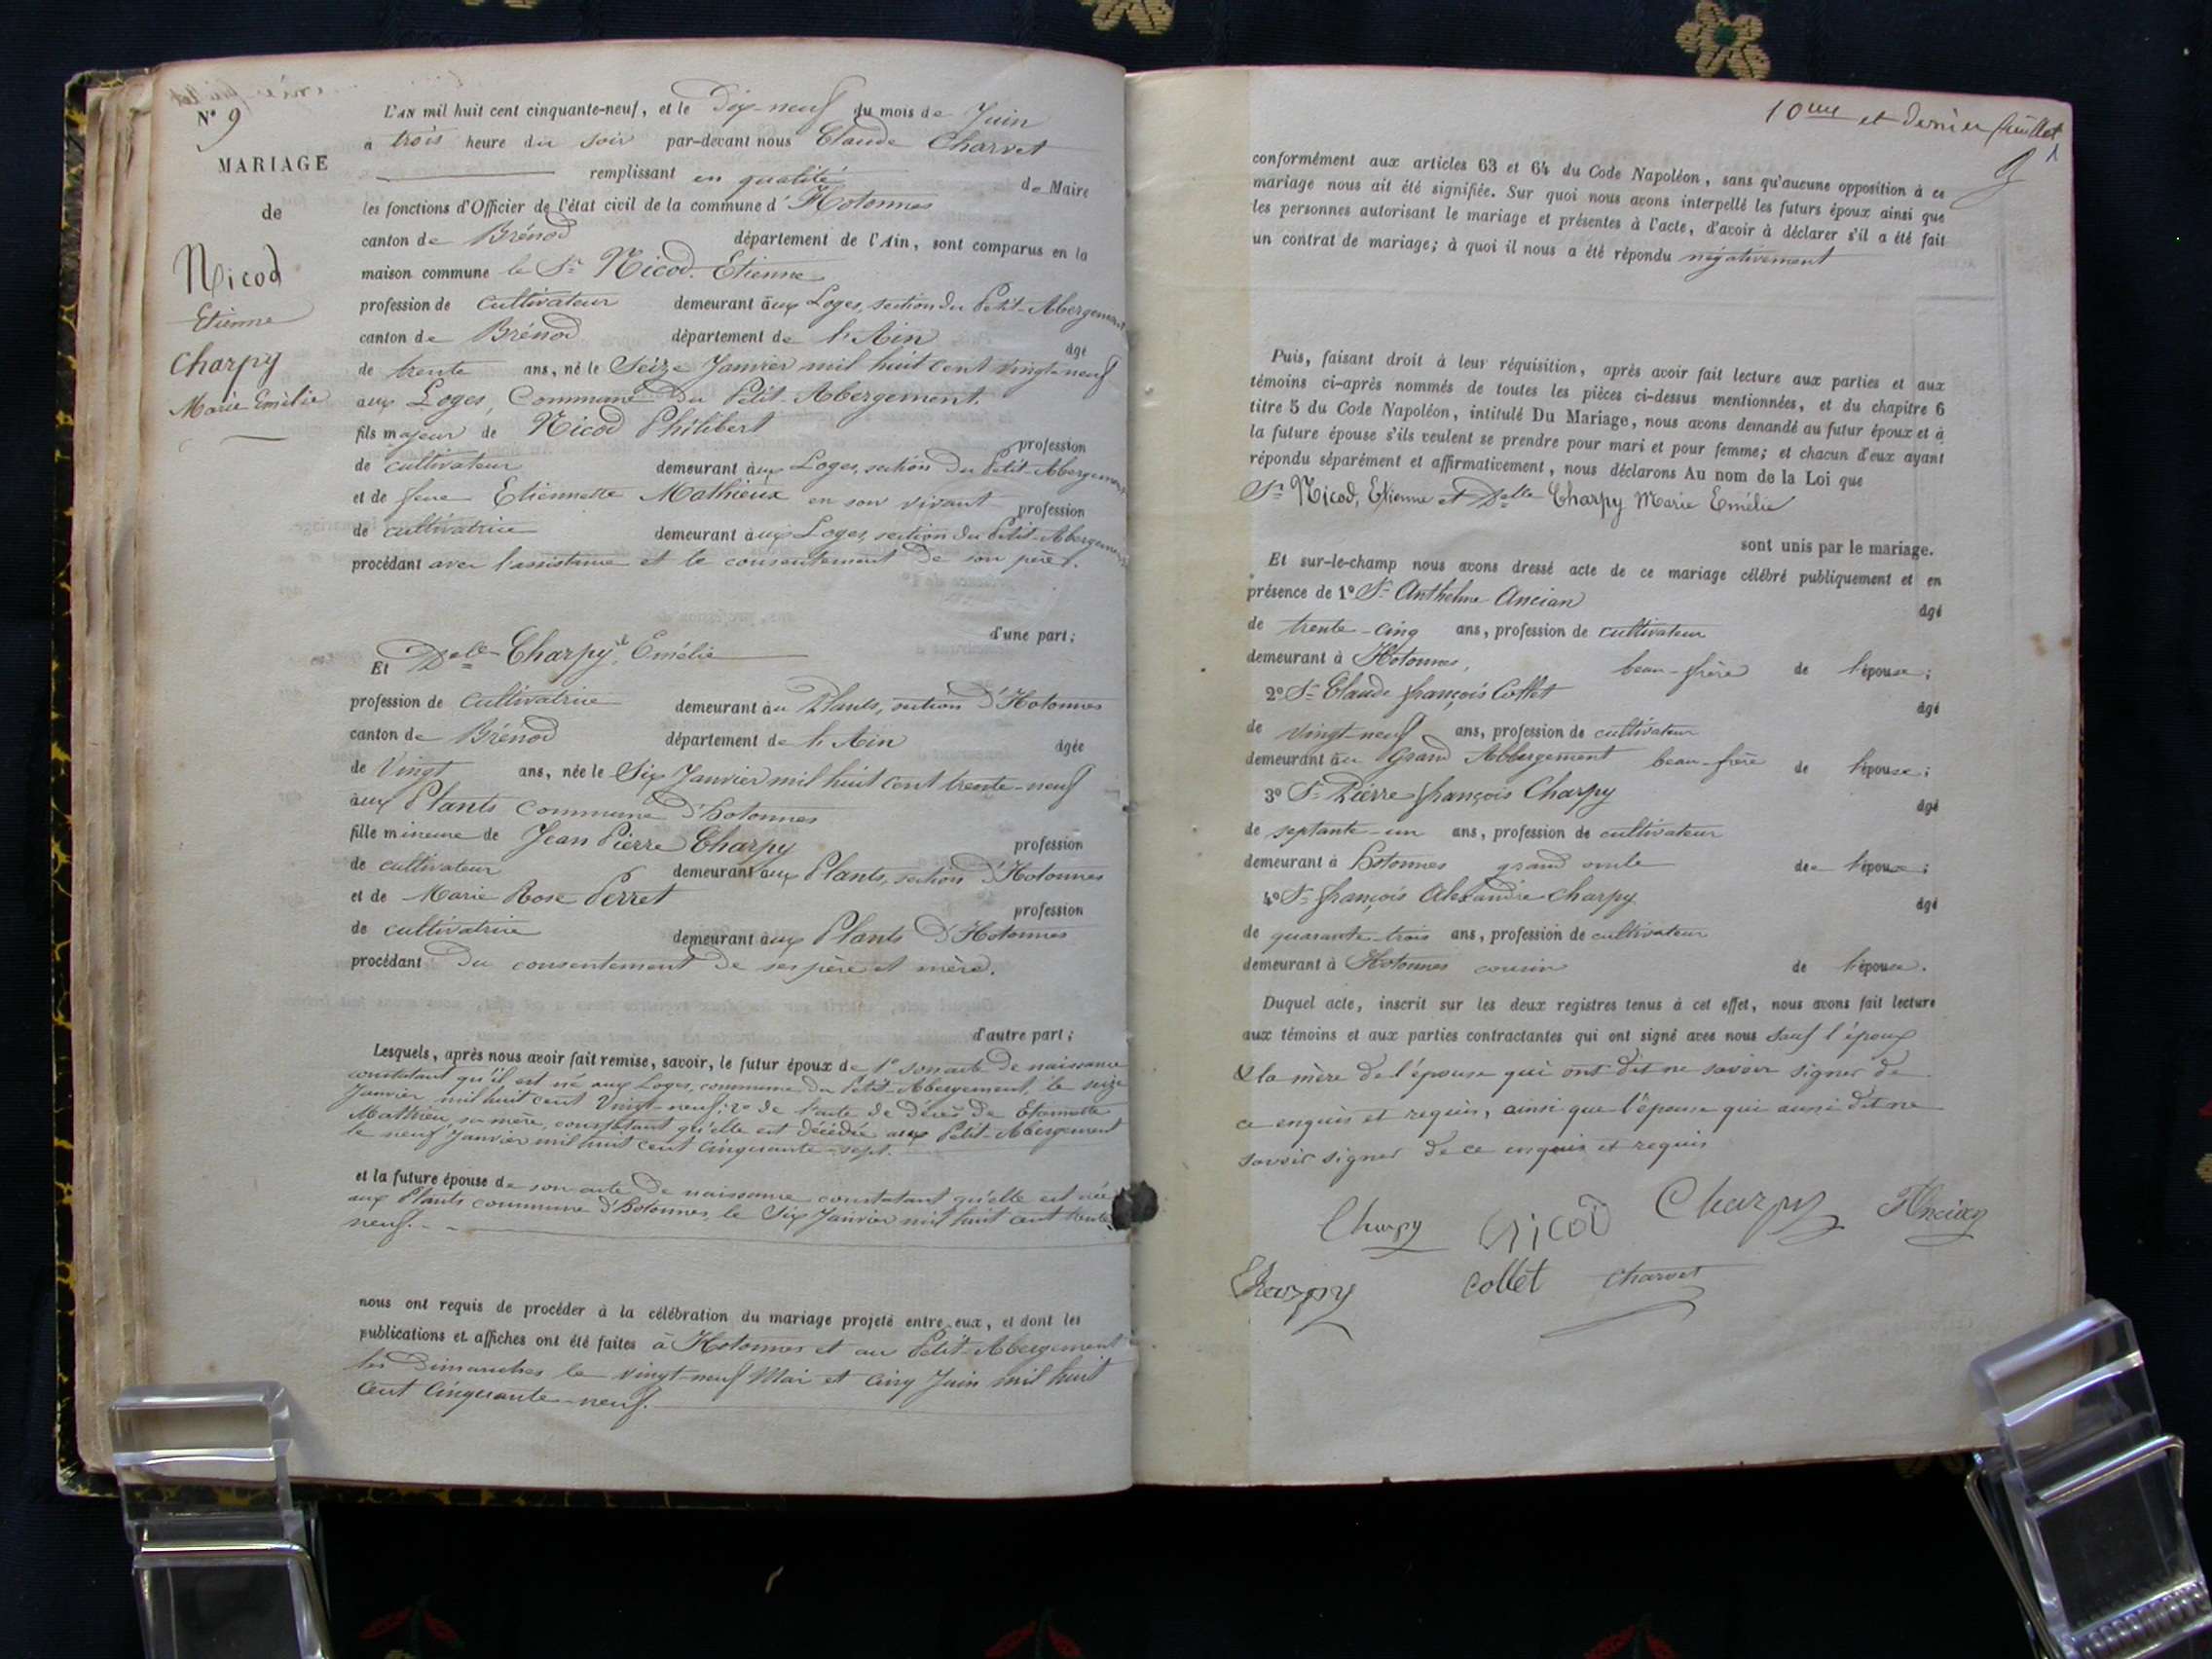 N° 9
MARIAGE
de
Nicod
Etienne
Charpy
Marie Emélie
L'AN mil huit cent cinquante-neuf, et le Dix-neuf du mois de Juin
à trois heure du soir par-devant nous Claude Charvet
remplissant en qualité de Maire
les fonctions d'Officier de l'état civil de la commune d'Hotonnes
canton de Brénod département de l'Ain, sont comparus en la
maison commune le Sr Nicod Etienne
profession de cultivateur demeurant aux Loges, section du Petit-Abergement
canton de Brénod département de l'Ain âgé
de trente ans, né le Seize Janvier mil huit cent vingt-neuf
aux Loges, Commune du Petit-Abergement.
fils majeur de Nicod Philibert profession
de cultivateur demeurant aux Loges, section du Petit-Abergement
et de feue Etiennette Mathieux en son vivant profession
de cultivatrice demeurant aux Loges, section du Petit-Abergement
procédant avec l'assistance et le consentement de son père.
d'une part;
Et Delle Charpy Emélie
profession de cultivatrice demeurant au Plants, section d'Hotonnes
canton de Brénod département de l'Ain âgée
de Vingt ans, née le Six Janvier mil huit cent trente-neuf
aux Plants commune d'hotonnes
fille mineure de Jean Pierre Charpy profession
de cultivateur demeurant aux Plants, section d'Hotonnes
et de Marie Rose Perret profession
de cultivatrice demeurant aux Plants d'Hotonnes
procédant du consentement de ses père et mère.
d'autre part;
Lesquels, après nous avoir fait remise, savoir, le futur époux de 1° son acte de naissance
constatant qu'il est né aux Loges, commune du Petit-Abergement, le seize
Janvier mil huit cent Vingt-neuf; 2° de l'acte de décès de Etiennette
Mathieu, sa mère, constatant qu'elle est décédée aux Petit-Abergement
le neuf Janvier mil huit cent cinquante-sept.
et la future épouse de son acte de naissance constatant qu'elle est née
aux Plants commune d'hotonnes, le Six Janvier mil huit cent trente
neuf.
nous ont requis de procéder à la célébration du mariage projeté entre eux, et dont les
publications et affiches ont été faites à Hotonnes et au Petit-Abergement
les Dimanches le vingt-neuf Mai et cinq Juin mil huit
cent cinquante-neuf.
10eme et dernier feuillet
conformément aux articles 63 et 64 du Code Napoléon, sans qu'aucune opposition à ce
mariage nous ait été signifiée. Sur quoi nous avons interpellé les futurs époux ainsi que
les personnes autorisant le mariage et présentes à l'acte, d'avoir à déclarer s'il a été fait
un contrat de mariage; à quoi il nous a été répondu négativement
Puis, faisant droit à leur réquisition, après avoir fait lecture aux parties et aux
témoins ci-après nommés de toutes les pièces ci-dessus mentionnées, et du chapitre 6
titre 5 du Code Napoléon, intitulé Du Mariage, nous avons demandé au futur époux et à
la future épouse s'ils veulent se prendre pour mari et pour femme; et chacun d'eux ayant
répondu séparément et affirmativement, nous déclarons Au nom de la Loi que
Sr Nicod, Etienne et Delle Charpy Marie Emélie
sont unis par le mariage.
Et sur-le-champ nous avons dressé acte de ce mariage célébré publiquement et en
présence de 1° Sr Anthelme Ancian âgé
de trente-cinq ans, profession de cultivateur
demeurant à Hotonnes, beau-frère de l'épouse;
2° Sr Claude françois Collet âgé
de vingt-neuf ans, profession de cultivateur
demeurant au Grand Abbergement beau-frère de l'épouse;
3° Sr Pierre françois Charpy âgé
de septante-un ans, profession de cultivateur
demeurant à hotonnes grand oncle de l'épouse;
4° Sr françois Alexandre Charpy âgé
de quarante-trois ans, profession de cultivateur
demeurant à Hotonnes cousin de l'épouse.
Duquel acte, inscrit sur les deux registres tenus à cet effet, nous avons fait lecture
aux témoins et aux parties contractantes qui ont signé avec nous sauf l'époux
& la mère de l'épouse qui ont dit ne savoir signer de
ce enquis et requis, ainsi que l'épouse qui aussi dit ne
savoir signer de ce enquis et requis
Charpy Nicod Charpy Ancian
Charpy Collet Charvet